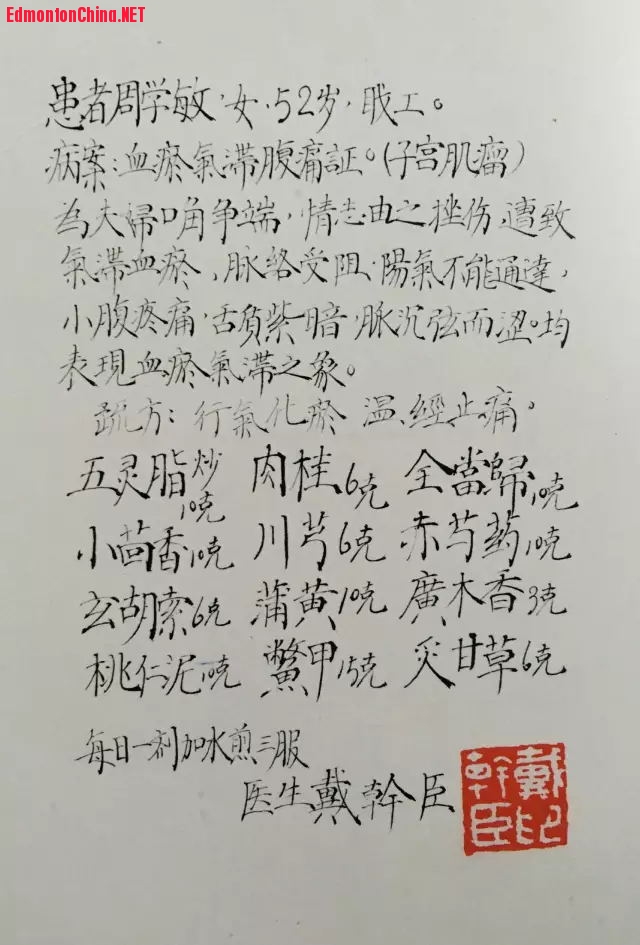 EdmontonChina.NET
患者周学敏，女，52岁，职工。
病案：血瘀氣滯腹痛証。(子宫肌瘤)
為夫婦口角争端，情志由之挫伤，遭致
氣滞血瘀、脉络受阻，陽氣不能通達，
小腹疼痛，舌質紫暗，脉沉弦而涩。均
表現血瘀氣滞之象。
疏方：行氣化瘀 温經止痛。
五灵脂炒10克 肉桂6克 全當歸10克
小茴香10克 川芎6克 赤芍药10克
玄胡索6克 蒲黄10克 廣木香3克
桃仁泥10克 鱉甲15克 炙甘草6克
每日一剂加水煎三服
医生戴幹臣
戴幹臣印